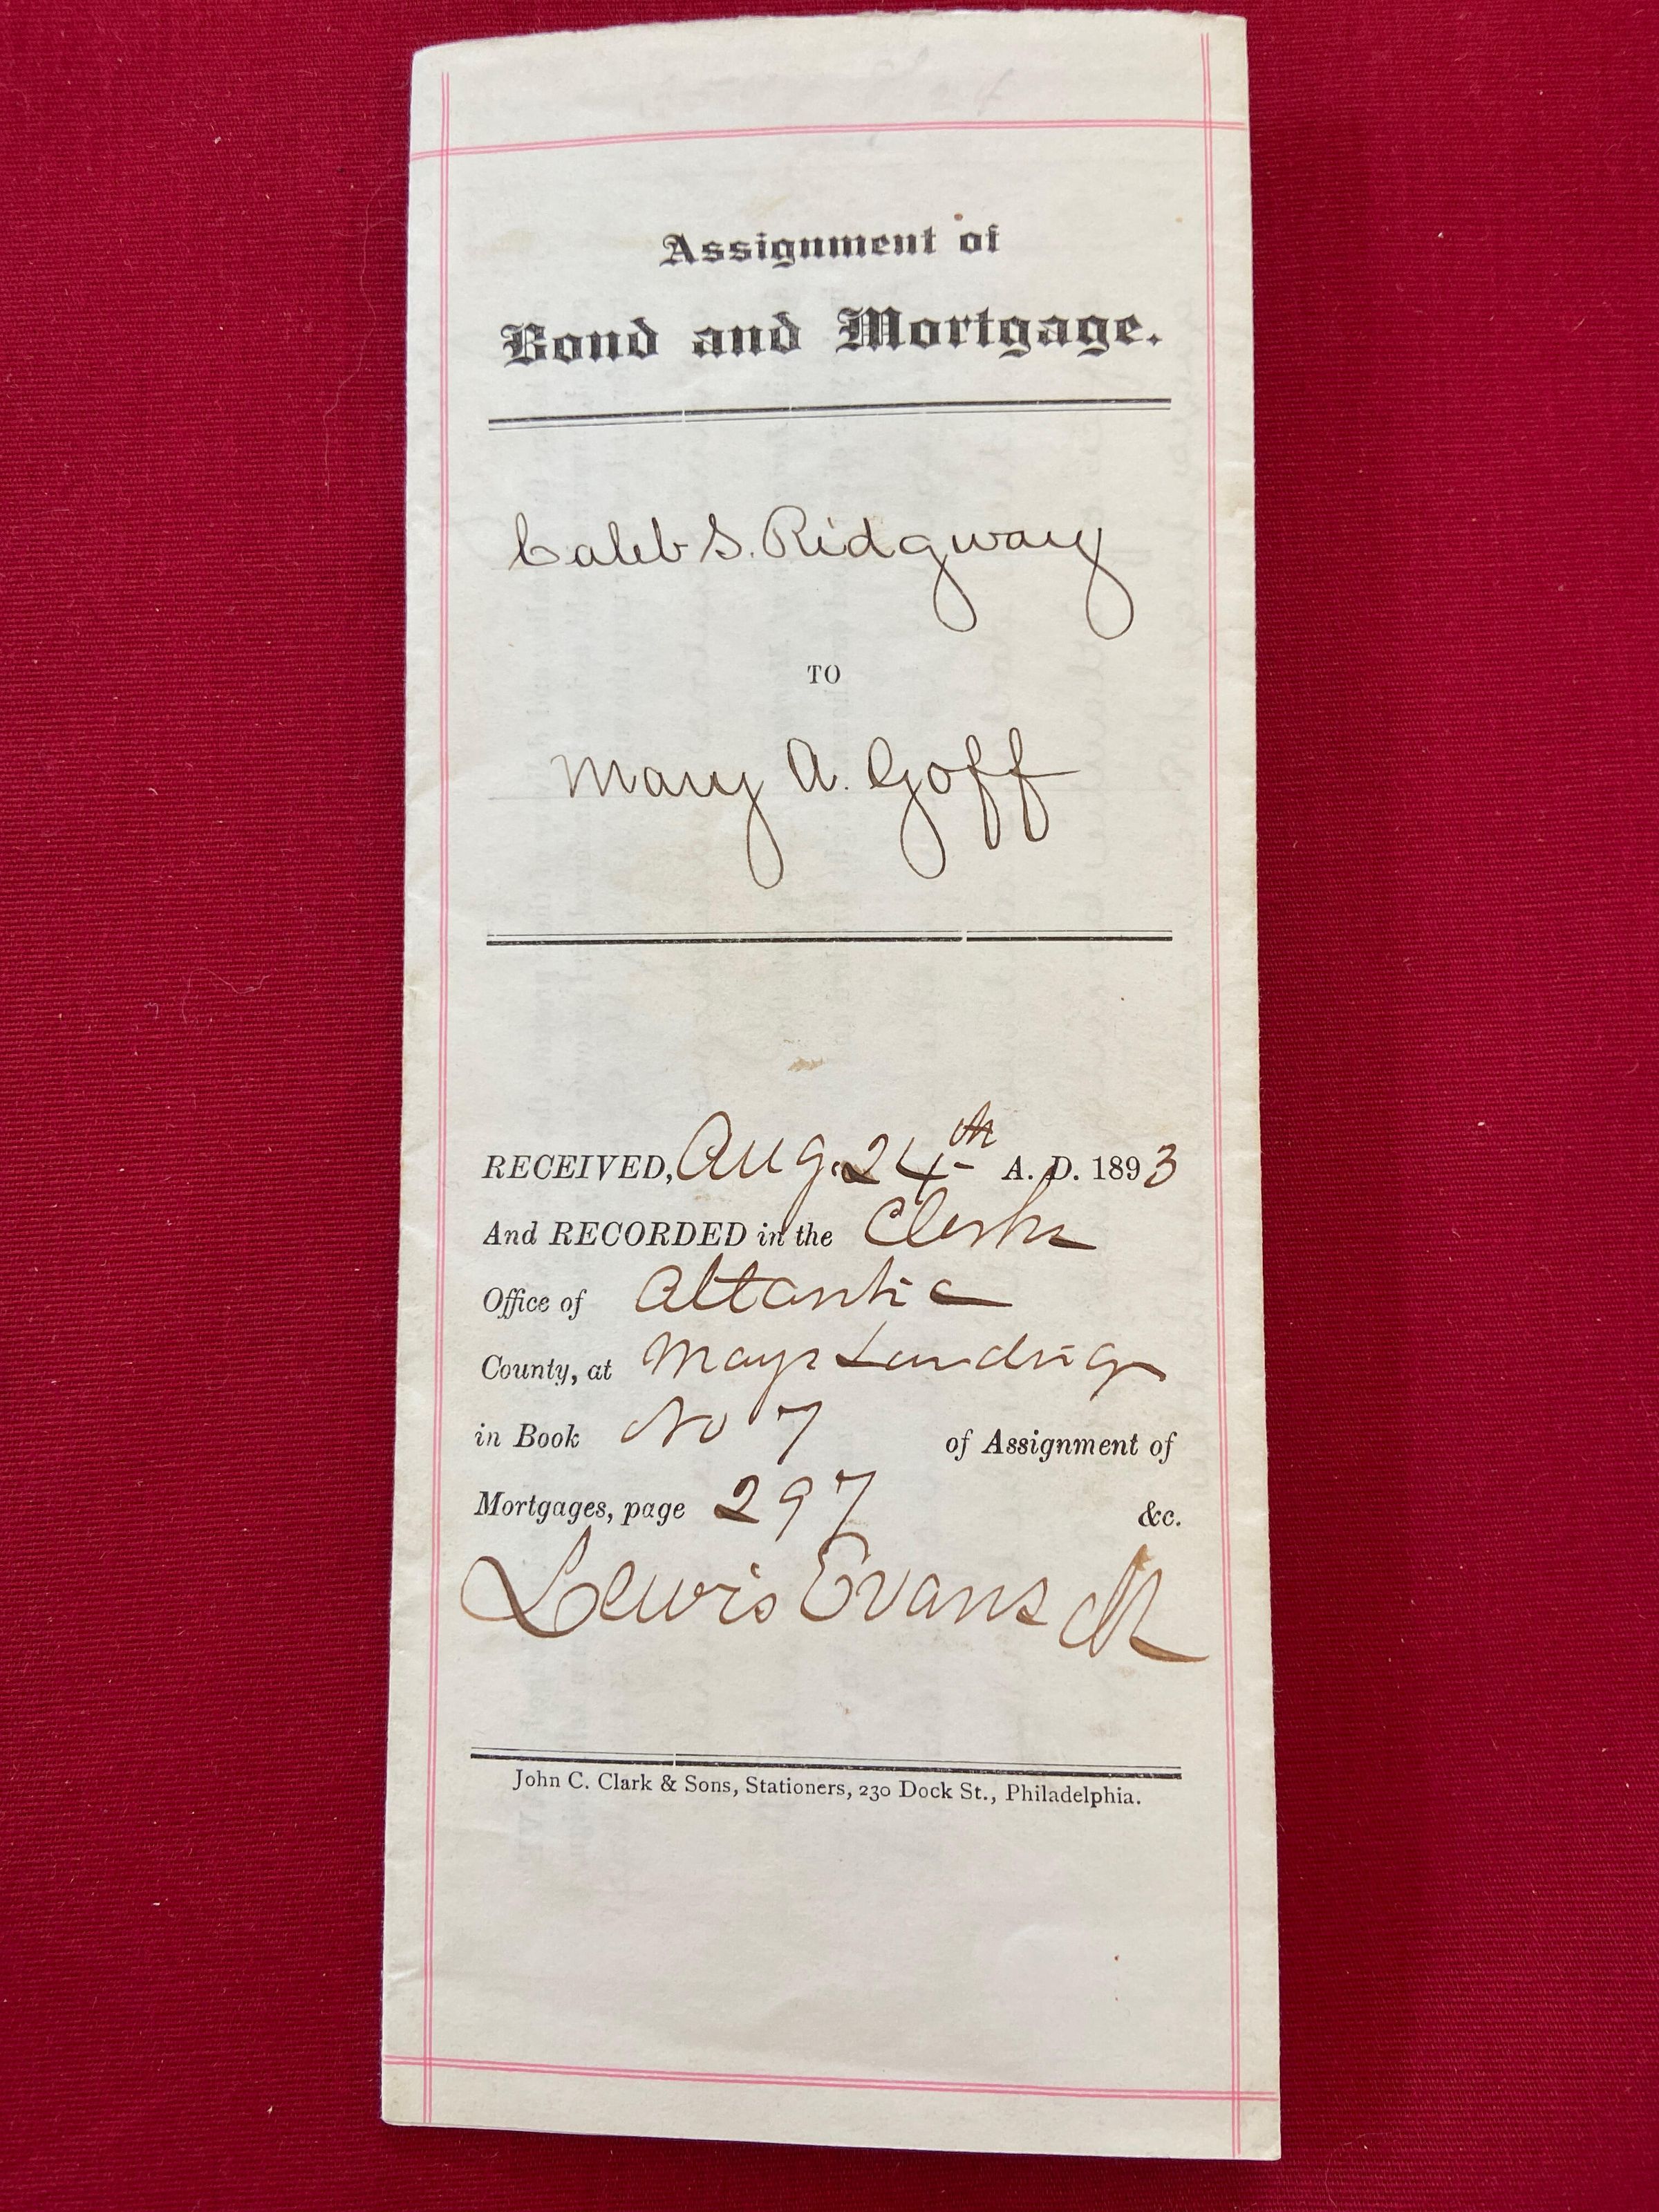 Assignment of
Bond and Mortgage.
Caleb S. Ridgway
TO
Mary A. Goff
RECEIVED, Aug. 24th A. D. 1893
And RECORDED in the Clerks
Office of Atlantic
County, at Mays Landing
in Book No 7 of Assignment of
Mortgages, page 297 &c.
Lewis Evans
John C. Clark & Sons, Stationers, 230 Dock St., Philadelphia.